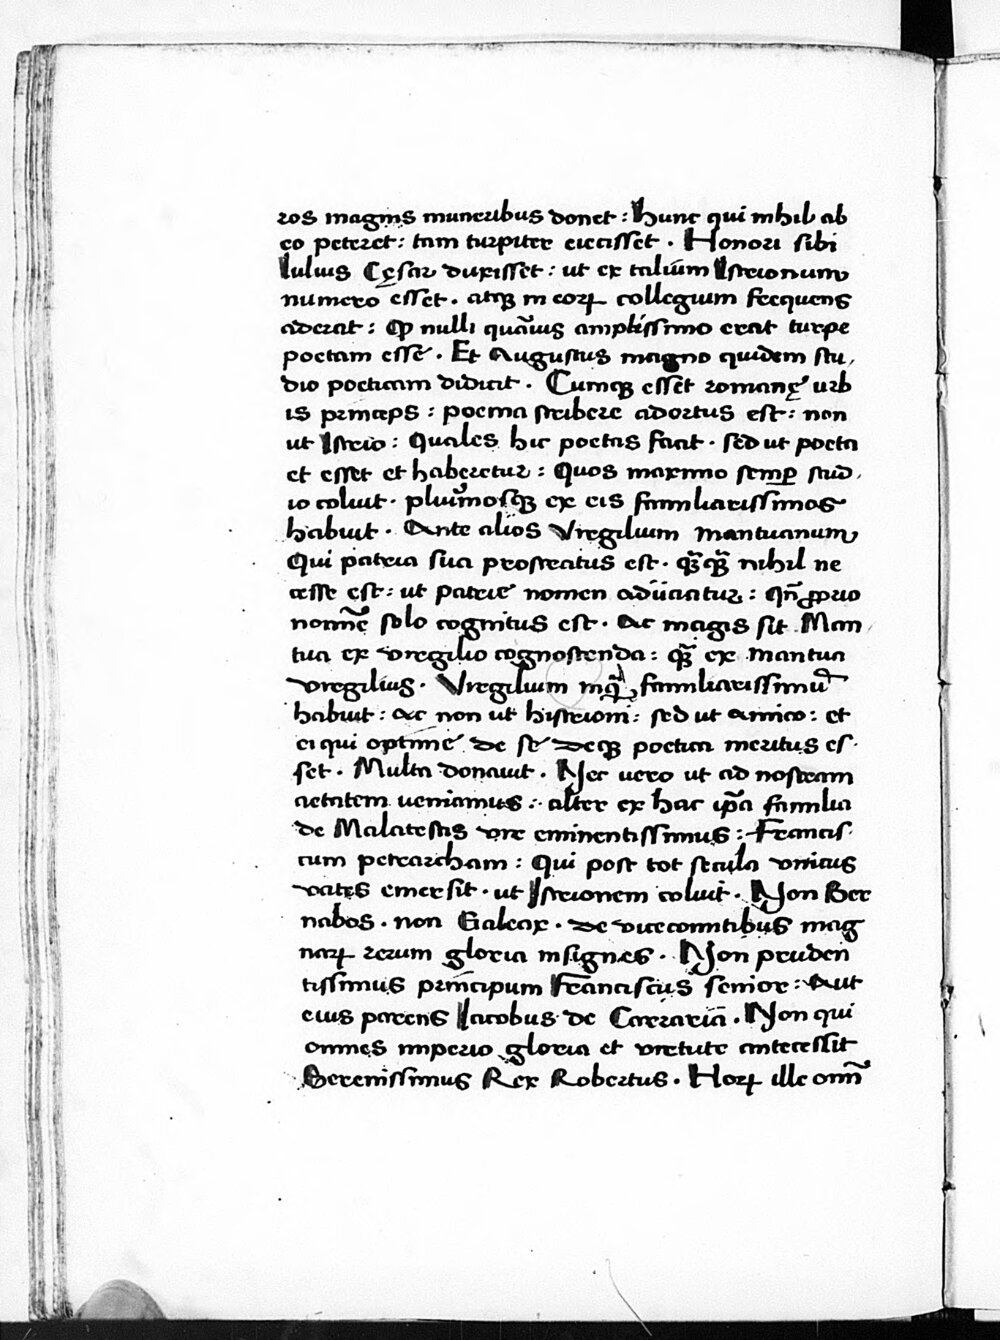 ros magnis muneribus donet : Hunc qui nihil ab
eo peteret : tam turpiter eiecisset . Honori sibi
Iulius Cęsar duxisset : ut ex talium Istrionum
numero esset . atqȝ in eoꝝ collegium frequens
aderat : Ꝙ nulli quāuis amplissimo erat turpe
poetam esse . Et Augustus magno quidem stu
dio poeticam didicit . Cumqȝ esset romanę urb
is princeps : poema scribere adortus est : non
ut Istrio : Quales hic poetas facit . sed ut poeta
et esset et haberetur : Quos maximo semꝑ stud
io coluit . plurīmosqȝ ex eis familiarissimos
habuit . Ante alios Virgilium mantuanum
Qui patria sua prostratus est . qq̄ nihil ne
cesse est : ut patrie nomen adiiciatur : qn̄ ꝓprio
nomīe solo cognitus est . Ac magis sit Man
tua ex virgilio cognoscenda : q̄ ex mantua
virgilius . Virgilium inq̄ familiarissimū
habuit : ac non ut histrioni : sed ut amico : et
ei qui optime de se deqȝ poetica meritus es
set . Multa donauit . Nec uero ut ad nostram
aetatem ueniamus : alter ex hac ip̄a familia
de Malatestis vir eminentissimus : Francis
cum petrarcham : Qui post tot secula vnicus
vates emersit . ut Istrionem coluit . Non Ber
nabos . non Galeax . de vicecomitibus mag
naꝝ rerum gloria insignes . Non pruden
tissimus principum Franciscus senior : Aut
eius parens Iacobus de Carrariā . Non qui
omnes imperio gloria et virtute antecessit
Serenissimus Rex Robertus . Hoꝝ ille om̄